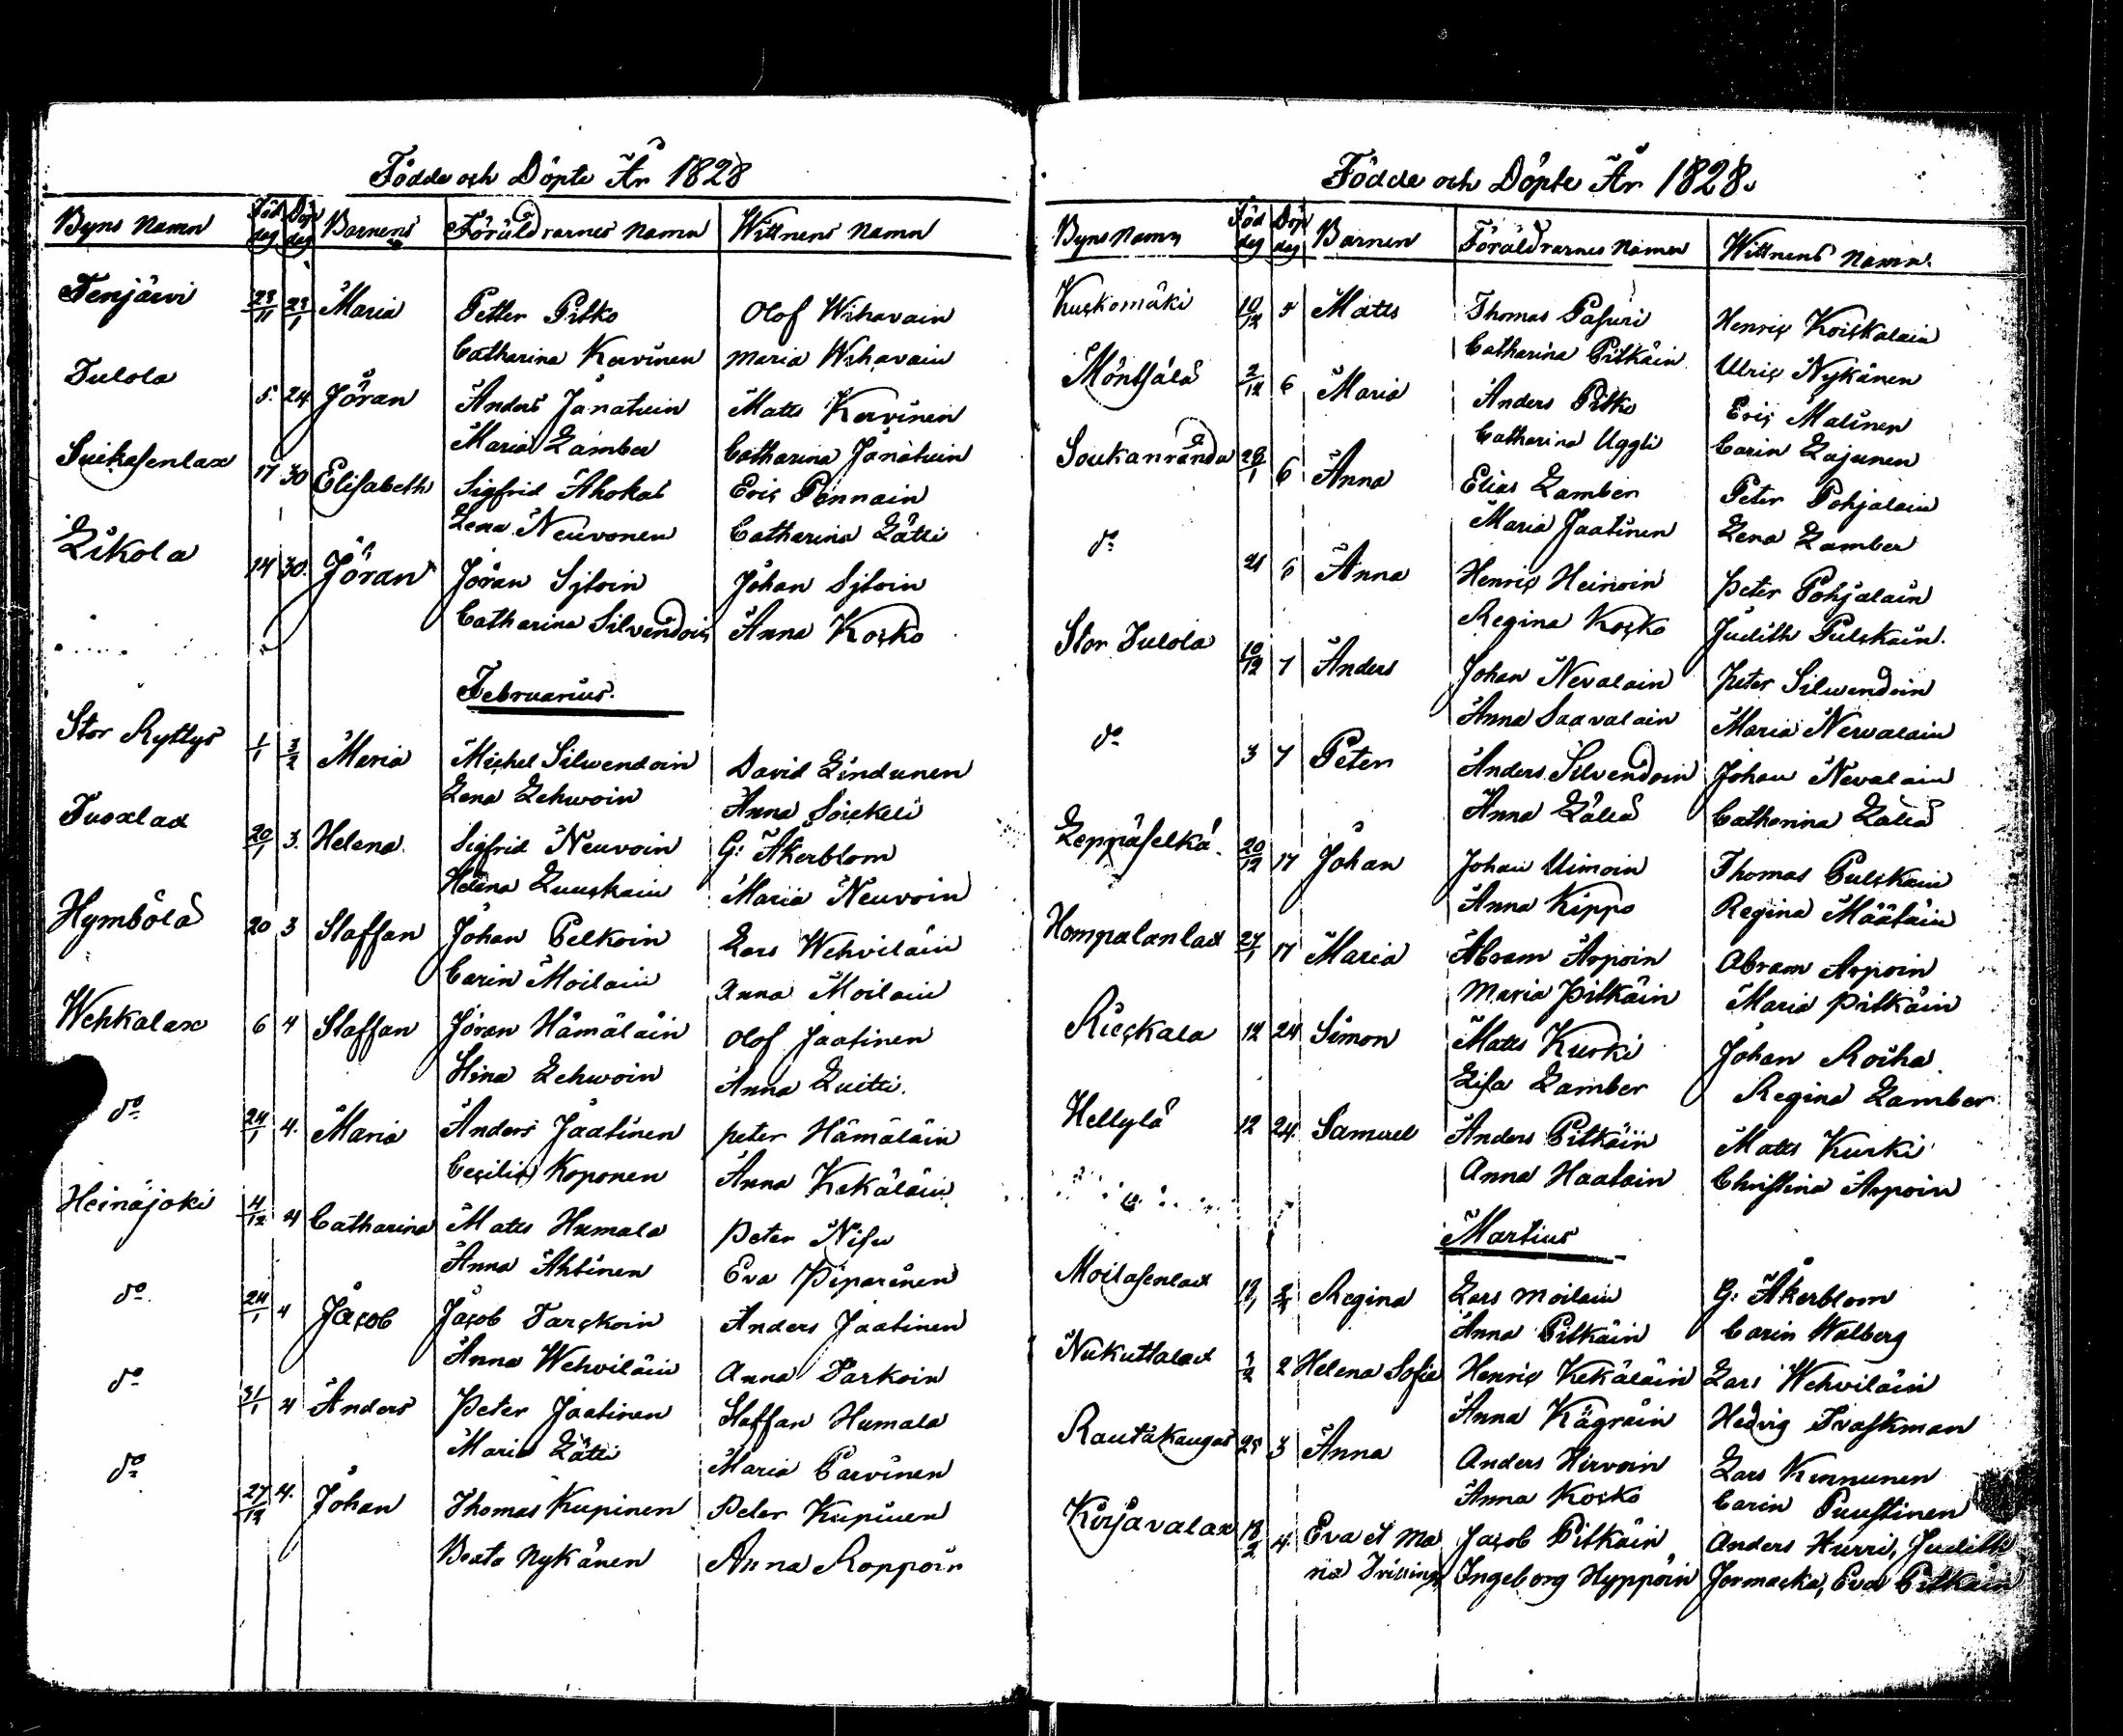 Födde och Döpte År 1828
Byns Namn Föd dag Döp dag Barnens Föräldrarnes Namn Wittnens Namn
Tenjärvi 23/11 23/1 Maria Petter Pitko Olof Wihavain
Catharina Kervinen Maria Wihavain
Tulola 5. 24 Jöran Anders Janatuin Matts Kervinen
Maria Lamber Catharina Janatuin
Suikasenlax 17 30 Elisabeth Sigfrid Ahokas Eric Pennain
Lena Neuvonen Catharina Lätti
Likola 14 30. Jöran Jöran Sjtoin Johan Sjtoin
Catharina Silvendoin Anna Kocko
Februarius.
Stor Ryttys 1/1 3/2 Maria Michel Silwendoin David Lindunen
Lena Lehwoin Anna Söickeli
Tuoxlax 20/1 3. Helena Sigfrid Neuvoin G: Åkerblom
Helena Luuckain Maria Neuvoin
Hymbölä 20 3 Staffan Johan Pelkoin Lars Wehviläin
Carin Moilain Anna Moilain
Wehkalax 6 4 Staffan Jöran Hämäläin Olof Jaatinen
Stina Lehwoin Anna Luitti.
do 24/1 4. Maria Anders Jaatinen Peter Hämäläin
Cecilia Koponen Anna Kekäläin
Heinäjoki 4/12 4 Catharina Matts Humala Peter Nisu
Anna Ahtinen Eva Piparinen
do. 24/1 4 Jacob Jacob Tarckoin Anders Jaatinen
Anna Wehviläin Anna Tarkoin
do 31/1 4 Anders Peter Jaatinen Staffan Humala
Maria Lätti Maria Parvinen
do 27/12 4. Johan Thomas Kupinen Peter Kupinen
Beata Nykänen Anna Roppoin
Födde och Döpte År 1828.
Byns Namn Föd dag Döp dag Barnen Föräldrarnes Namn Wittnens Namn.
Kuckomäki 10/12 5 Matts Thomas Pasuri Henric Koickalain
Catharina Pitkäin Ulric Nykänen
Möntsälä 2/12 6 Maria Anders Pitko Eric Malinen
Catharina Uggli Carin Lajunen
Soukanranda 28/1 6 Anna Elias Lamber Peter Pohjalain
Maria Jaatinen Lena Lamber
do 21 6 Anna Henric Heinoin Peter Pohjalain
Regina Kocko Judith Pulckain.
Stor Tulola 10/12 7 Anders Johan Nevalain Peter Silwendoin
Anna Saavalain Maria Nevalain
do 3 7 Peter Anders Silvendoin Johan Nevalain
Anna Lälla Catharina Lälla
Leppäselkä. 20/12 17 Johan Johan Uimoin Thomas Pulckain
Anna Kippo Regina Määtäin
Hompalanlax 27/1 17 Maria Abram Arpoin Abram Arpoin
Maria Pitkäin Maria Pitkäin
Rieckala 12 24 Simon Matts Kurki Johan Roiha.
Lisa Lamber Regina Lamber
Hellylä 12 24. Samuel Anders Pitkäin Matts Kurki
Anna Haatain Christina Arpoin
Martius
Moilasenlax Regina Lars Moilain G: Åkerblom
Anna Pitkäin Carin Walberg
Nukuttalax 2 Helena Sofia Henric Kekäläin Lars Wehviläin
Anna Kägräin Hedvig Traskman
Rautakangas 25 3 Anna Anders Hirvoin Lars Kinnunen
Anna Kocko Carin Puustinen
Kirjavalax 18/2 4. Eva et Ma Jacob Pitkäin Anders Hurri, Judith
ria Ingeborg Hyppöin Jormacka, Eva Pitkäin